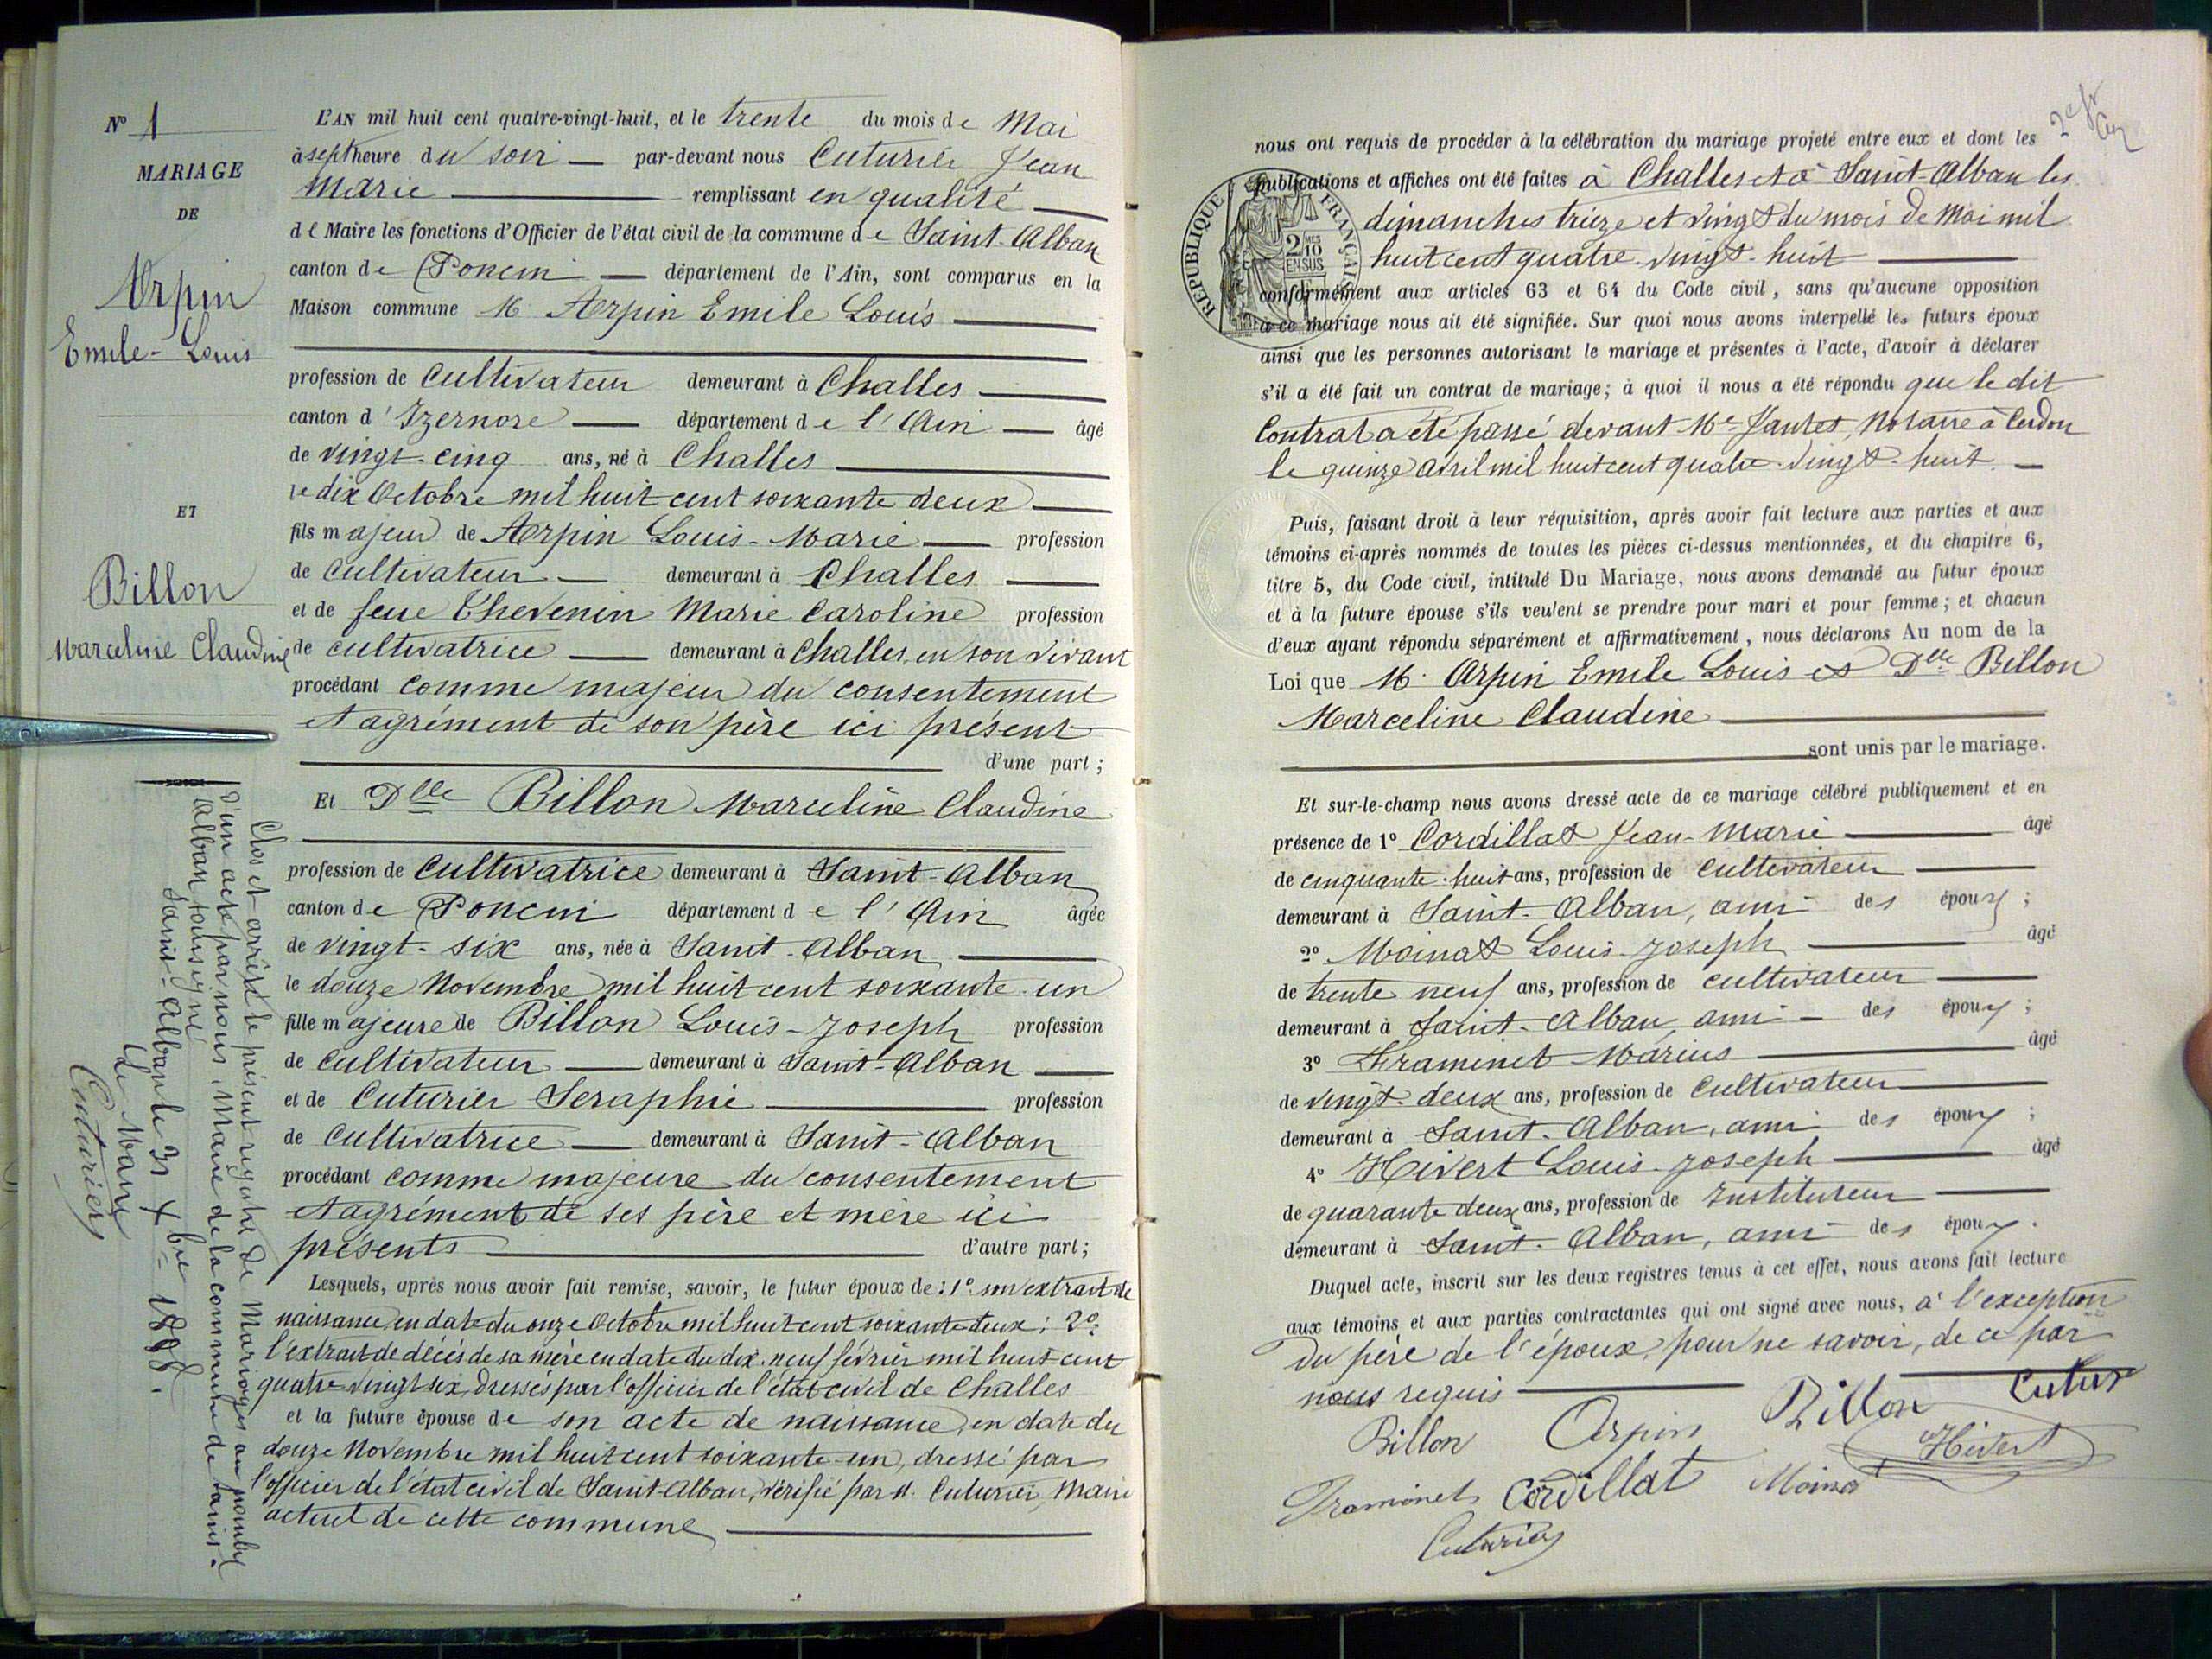 N° 1
MARIAGE
DE
Arpin
Emile-Louis
ET
Billon
Marceline Claudine
L'AN mil huit cent quatre-vingt-huit, et le trente du mois de Mai
à sept heure du soir — par-devant nous Cuturier Jean
Marie — remplissant en qualité —
de Maire les fonctions d'Officier de l'état civil de la commune de Saint-Alban
canton de Poncin — département de l'Ain, sont comparus en la
Maison commune M. Arpin Emile Louis —
profession de Cultivateur demeurant à Challes —
canton d'Izernore — département de l'Ain — âgé
de vingt-cinq ans, né à Challes —
le dix Octobre mil huit cent soixante deux —
fils majeur de Arpin Louis-Marie — profession
de Cultivateur — demeurant à Challes —
et de feue Thevenin Marie Caroline profession
de cultivatrice — demeurant à Challes, en son vivant
procédant comme majeur du consentement
et agrément de son père ici présent
d'une part;
Et Dlle Billon Marceline Claudine
profession de Cultivatrice demeurant à Saint-Alban
canton de Poncin département de l'Ain âgée
de vingt-six ans, née à Saint-Alban —
le douze Novembre mil huit cent soixante-un
fille majeure de Billon Louis-Joseph profession
de cultivateur — demeurant à Saint-Alban —
et de Cuturier Séraphie — profession
de Cultivatrice — demeurant à Saint-Alban
procédant comme majeure du consentement
et agrément de ses père et mère ici
présents — d'autre part;
Lesquels, après nous avoir fait remise, savoir, le futur époux de: 1° son extrait de
naissance en date du onze Octobre mil huit cent soixante-deux; 2°
l'extrait de décès de sa mère en date du dix-neuf février mil huit cent
quatre-vingt-six, dressés par l'officier de l'état civil de Challes
et la future épouse de son acte de naissance, en date du
douze Novembre mil huit cent soixante-un, dressé par
l'officier de l'état civil de Saint-Alban, vérifié par M. Cuturier, Maire
actuel de cette commune —
Clos et arrêté le présent registre de Mariages au nombre
d'un acte par nous, Maire de la commune de Saint-
Alban soussigné
Saint-Alban le 31 Xbre 1888.
Le Maire
Cuturier
nous ont requis de procéder à la célébration du mariage projeté entre eux et dont les
publications et affiches ont été faites à Challes et à Saint-Alban les
dimanches treize et vingt du mois de Mai mil
huit cent quatre-vingt-huit —
conformément aux articles 63 et 64 du Code civil, sans qu'aucune opposition
à ce mariage nous ait été signifiée. Sur quoi nous avons interpellé les futurs époux
ainsi que les personnes autorisant le mariage et présentes à l'acte, d'avoir à déclarer
s'il a été fait un contrat de mariage; à quoi il nous a été répondu que le dit
Contrat a été passé devant Me Jantet, Notaire à Cerdon
le quinze avril mil huit cent quatre-vingt-huit. —
REPUBLIQUE FRANÇAISE
2 MES
2/10
EN SUS
Puis, faisant droit à leur réquisition, après avoir fait lecture aux parties et aux
témoins ci-après nommés de toutes les pièces ci-dessus mentionnées, et du chapitre 6,
titre 5, du Code civil, intitulé Du Mariage, nous avons demandé au futur époux
et à la future épouse s'ils veulent se prendre pour mari et pour femme; et chacun
d'eux ayant répondu séparément et affirmativement, nous déclarons Au nom de la
Loi que M. Arpin Emile Louis et Dlle Billon
Marceline Claudine —
sont unis par le mariage.
Et sur-le-champ nous avons dressé acte de ce mariage célébré publiquement et en
présence de 1° Cordillat Jean-Marie — âgé
de cinquante-huit ans, profession de Cultivateur —
demeurant à Saint-Alban, ami des époux;
2° Moinat Louis-Joseph — âgé
de trente neuf ans, profession de cultivateur —
demeurant à Saint-Alban, ami — des époux;
3° Framinet Marius — âgé
de vingt-deux ans, profession de Cultivateur —
demeurant à Saint-Alban, ami des époux;
4° Hivert Louis-Joseph — âgé
de quarante-deux ans, profession de Instituteur —
demeurant à Saint-Alban, ami des époux.
Duquel acte, inscrit sur les deux registres tenus à cet effet, nous avons fait lecture
aux témoins et aux parties contractantes qui ont signé avec nous, à l'exception
du père de l'époux, pour ne savoir, de ce par
nous requis —
Billon Arpin Billon Cutur
Framinet Cordillat Moinat Hivert
Cuturier